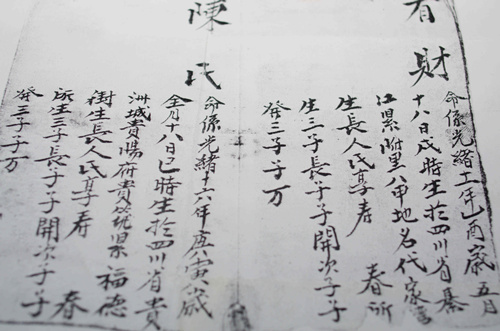 財
命係光緒十一年乙酉歲五月
十八日戌時生於四川省綦
江県附里八甲地名代家
生長人氏享寿 春所
生三子長子子開次子子
發三子子万
陳氏
命係光緒十六年庚寅歲
全月十八日巳時生於四川省貴
洲城貴陽府貴筑県福德
街生長人氏享寿 春
所生三子長子子開次子子
發三子子万